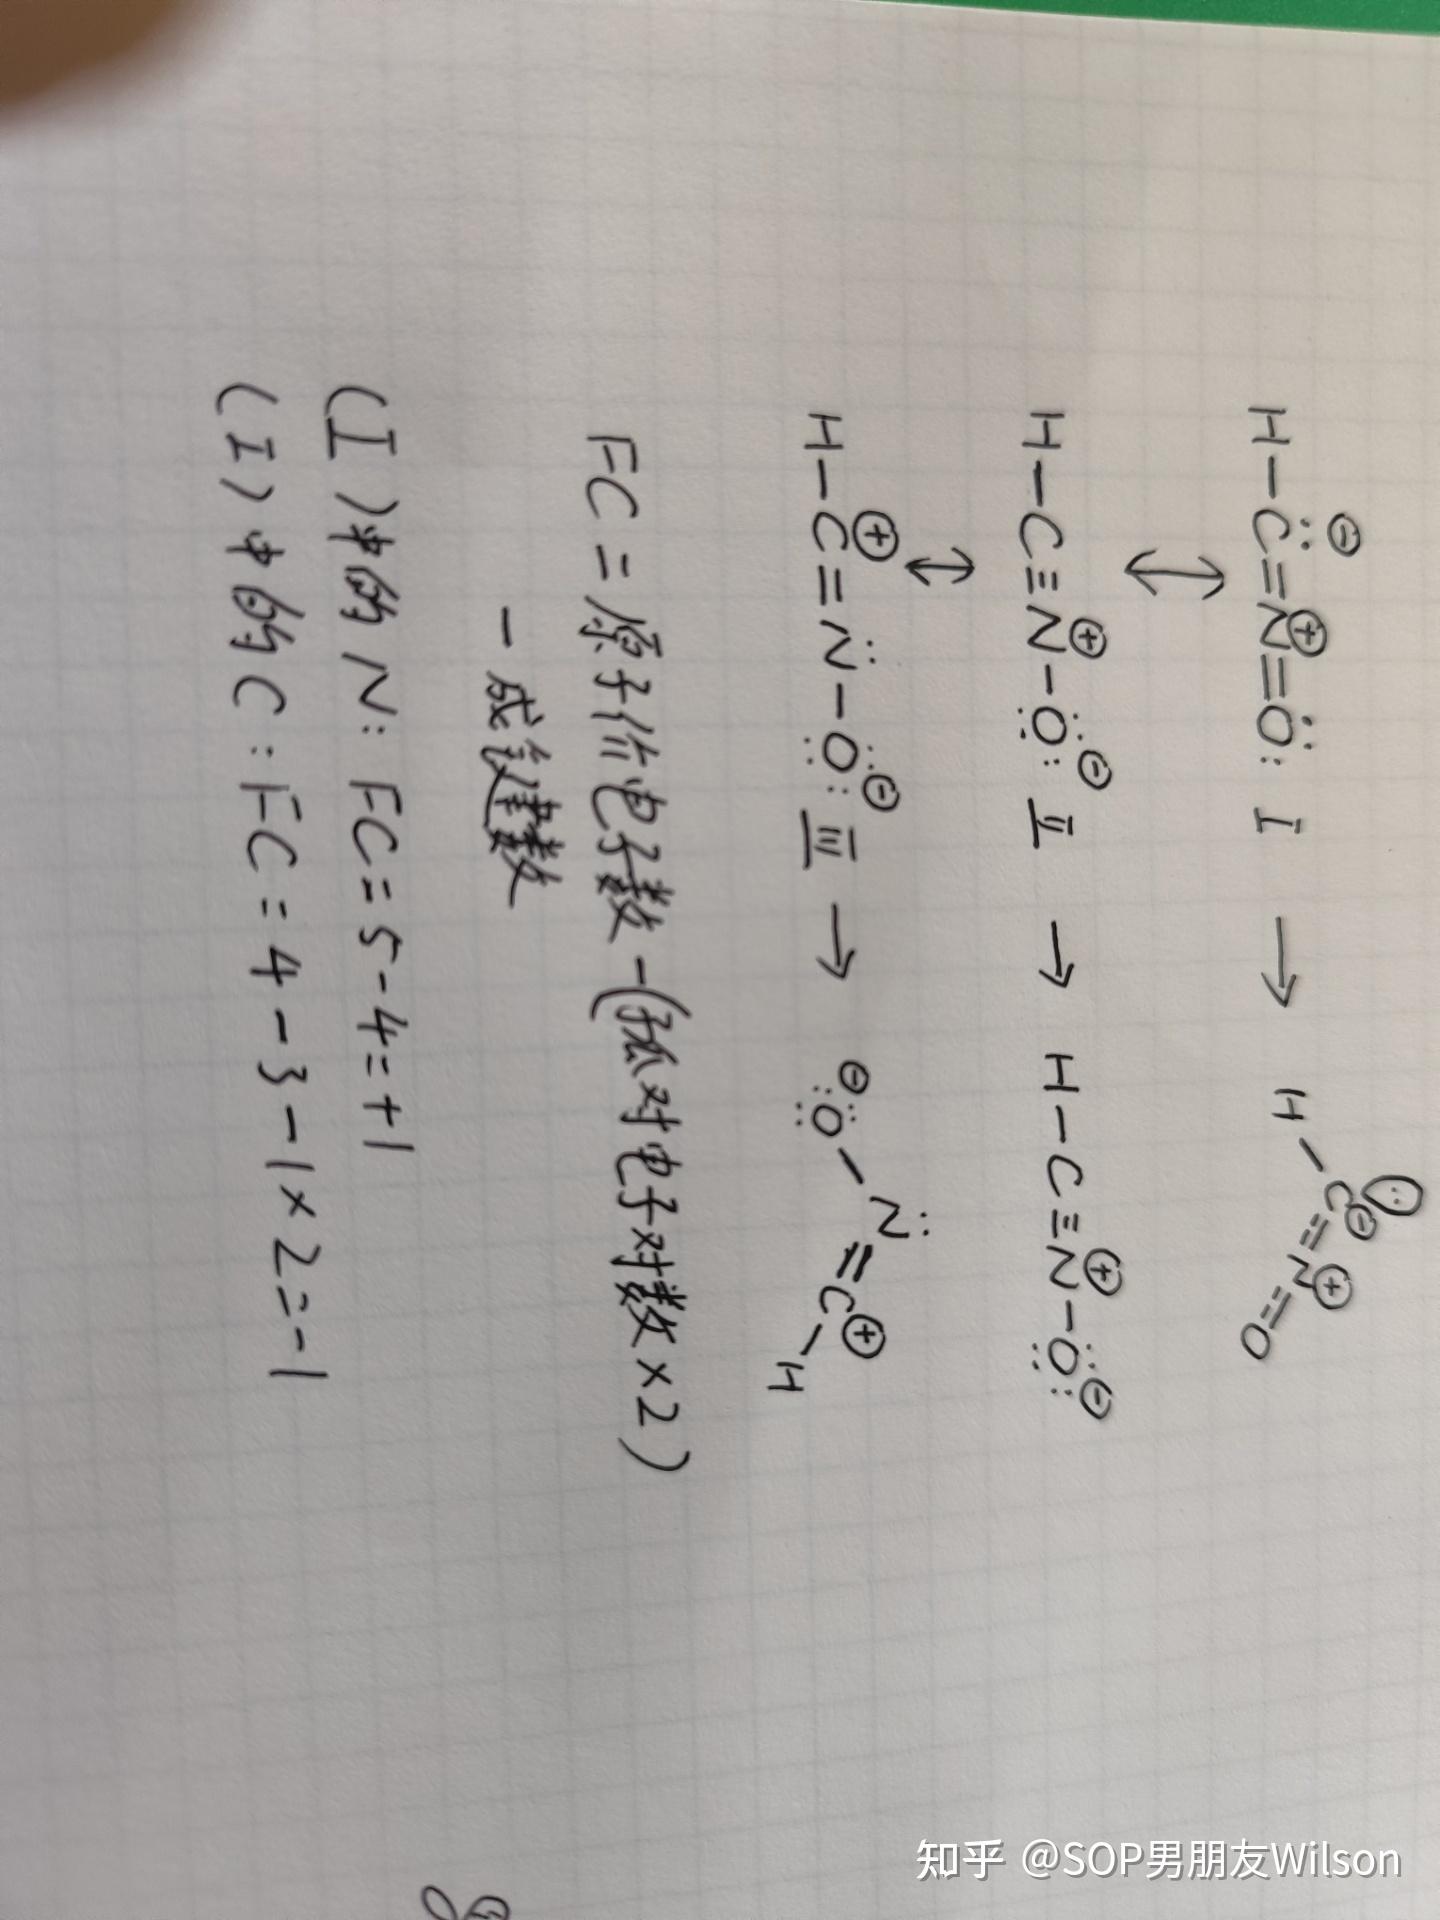 H-C̈⊖=N⊕=Ö: I → H-C⊖=N⊕=O
↔
H-C≡N⊕-Ö:⊖ II → H-C≡N⊕-Ö:⊖
↔
H-C⊕=N̈-Ö:⊖ III → ⊖:Ö-N̈=C⊕-H
FC=原子价电子数-(孤对电子对数×2)
-成键数
(I)中的N: FC=5-4=+1
(I)中的C: FC=4-3-1×2=-1
知乎 @SOP男朋友Wilson